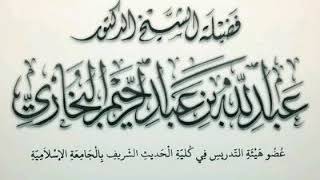 فضيلة الشيخ الدكتور
عبد الله بن عبد الرحيم البخاري
عضو هيئة التدريس في كلية الحديث الشريف بالجامعة الإسلامية